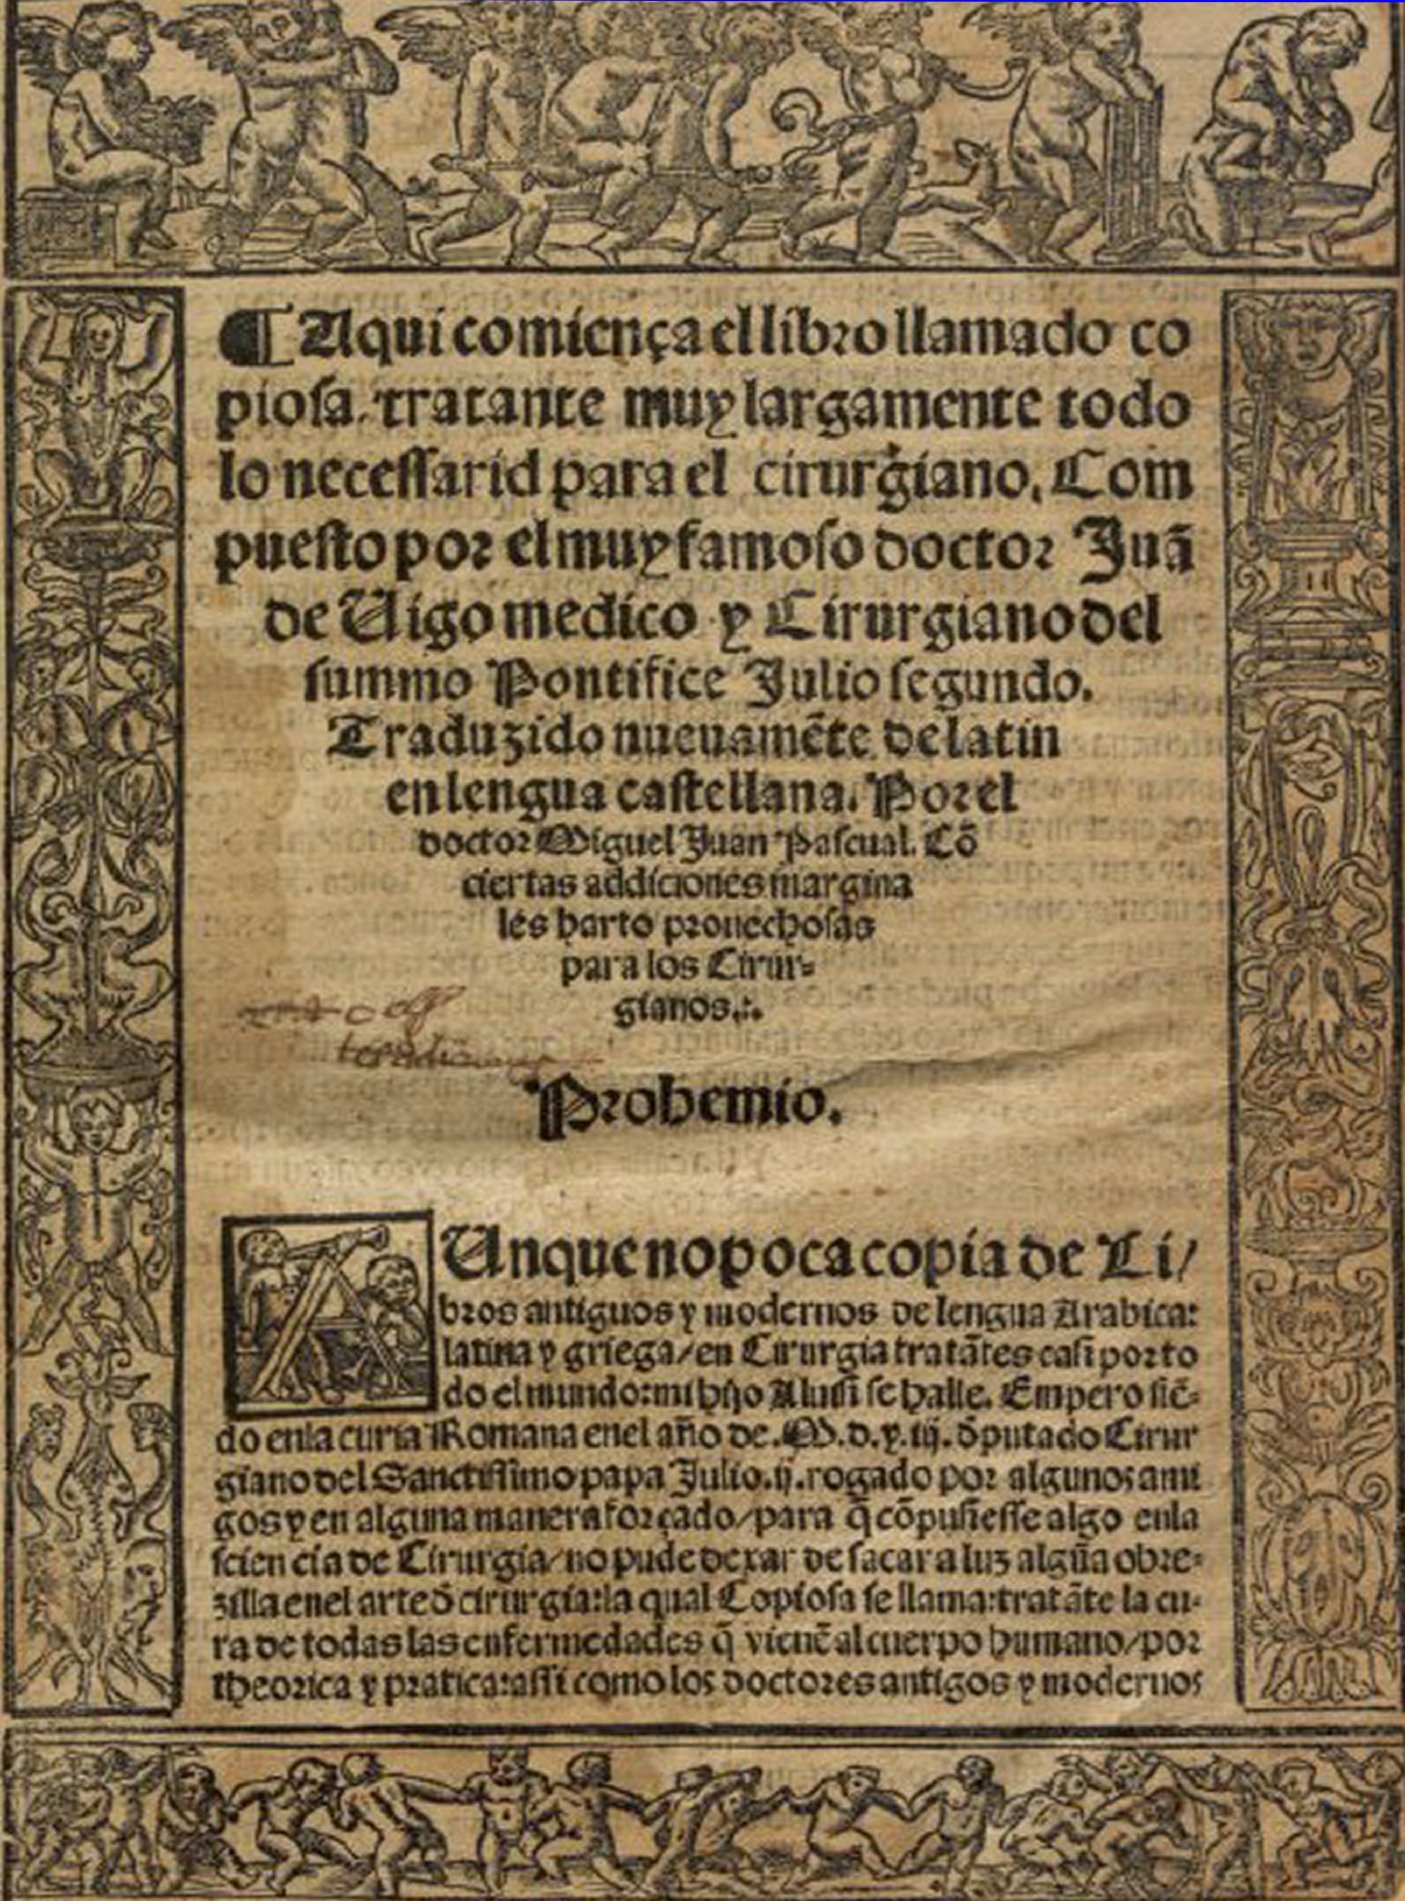 ¶ Aqui comiença el libro llamado co
piosa. tratante muy largamente todo
lo necessario para el cirurgiano. Com
puesto por el muy famoso doctor Juã
de Uigo medico y Cirurgiano del
summo Pontifice Julio segundo.
Traduzido nueuamẽte de latin
en lengua castellana. Por el
doctor Miguel Juan Pascual. Cõ
ciertas addiciones margina
les harto prouechosas
para los Cirur=
gianos.:.
Prohemio.
AUnque no poca copia de Li/
bros antiguos y modernos de lengua Arabica:
latina y griega/en Cirurgia tratãtes casi por to
do el mundo: mi hijo Aluisi se halle. Empero siẽ=
do enla curia Romana enel año de .M.d.x.iij. d̃putado Cirur
giano del Sanctissimo papa Julio.ij. rogado por algunos ami
gos y en alguna manera forçado/para q̃ cõpusiesse algo enla
sciencia de Cirurgia/no pude dexar de sacar a luz algũa obre=
zilla enel arte d̃ cirurgia: la qual Copiosa se llama: tratãte la cu=
ra de todas las enfermedades q̃ vienẽ al cuerpo humano/por
theorica y pratica: assi como los doctores antigos y modernos